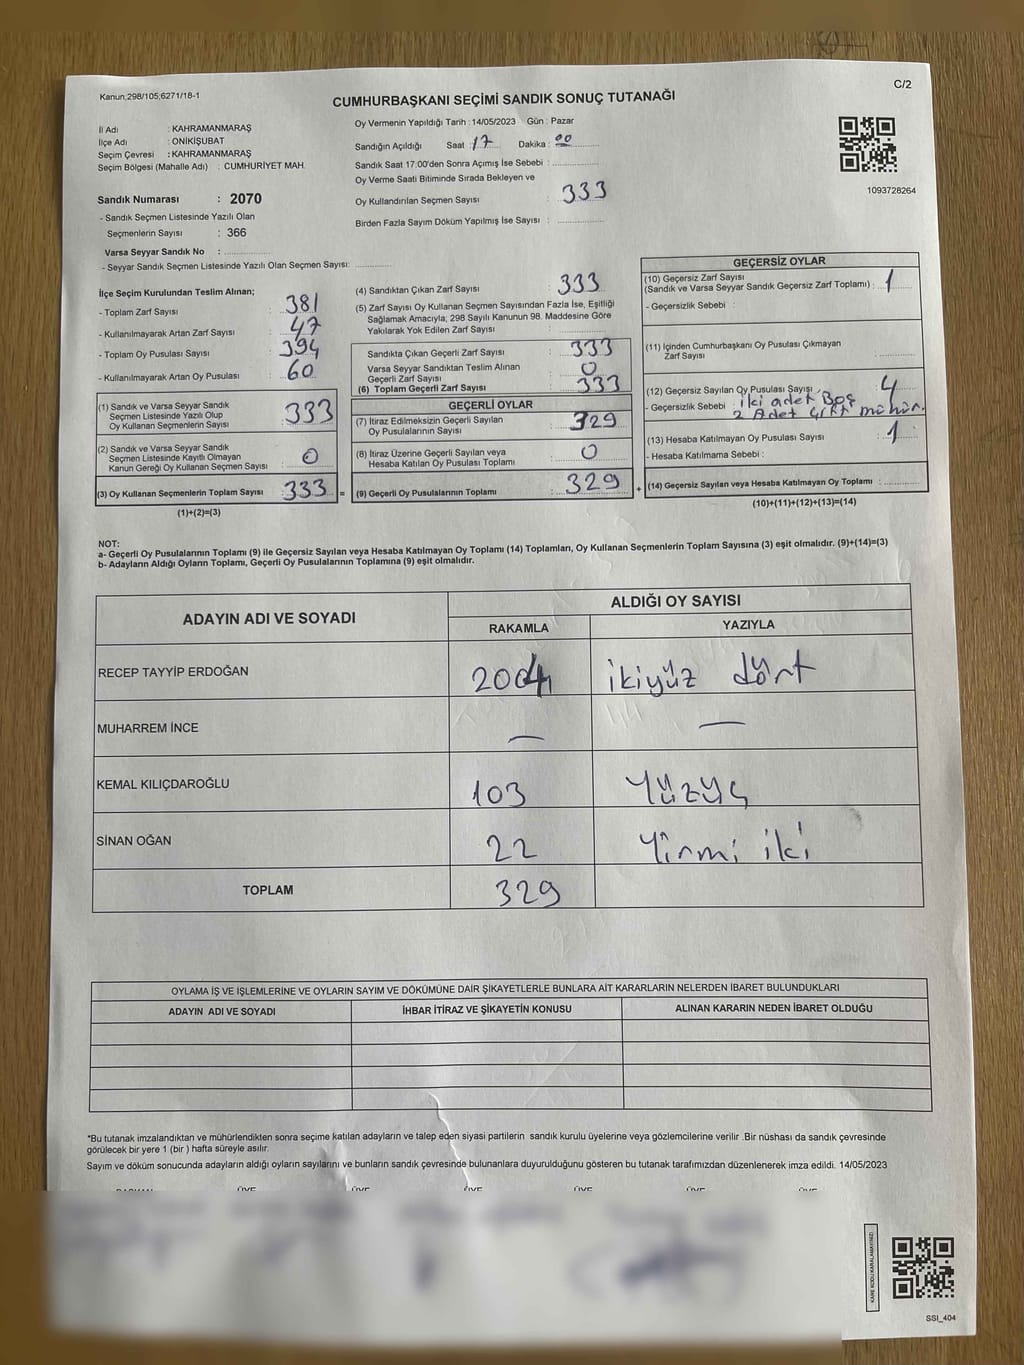 Kanun,298/105;6271/18-1
C/2
CUMHURBAŞKANI SEÇİMİ SANDIK SONUÇ TUTANAĞI
İl Adı : KAHRAMANMARAŞ
İlçe Adı : ONİKİŞUBAT
Seçim Çevresi : KAHRAMANMARAŞ
Seçim Bölgesi (Mahalle Adı) : CUMHURİYET MAH.
Sandık Numarası : 2070
- Sandık Seçmen Listesinde Yazılı Olan
Seçmenlerin Sayısı : 366
Varsa Seyyar Sandık No :
- Seyyar Sandık Seçmen Listesinde Yazılı Olan Seçmen Sayısı:
Oy Vermenin Yapıldığı Tarih :14/05/2023 Gün : Pazar
Sandığın Açıldığı Saat : 17 Dakika : 00
Sandık Saat 17:00'den Sonra Açımış İse Sebebi :
Oy Verme Saati Bitiminde Sırada Bekleyen ve
Oy Kullandırılan Seçmen Sayısı : 333
Birden Fazla Sayım Döküm Yapılmış İse Sayısı :
1093728264
İlçe Seçim Kurulundan Teslim Alınan;
- Toplam Zarf Sayısı : 381
- Kullanılmayarak Artan Zarf Sayısı : 47
- Toplam Oy Pusulası Sayısı : 394
- Kullanılmayarak Artan Oy Pusulası : 60
(1) Sandık ve Varsa Seyyar Sandık
Seçmen Listesinde Yazılı Olup
Oy Kullanan Seçmenlerin Sayısı : 333
(2) Sandık ve Varsa Seyyar Sandık
Seçmen Listesinde Kayıtlı Olmayan
Kanun Gereği Oy Kullanan Seçmen Sayısı : 0
(3) Oy Kullanan Seçmenlerin Toplam Sayısı : 333 =
(1)+(2)=(3)
(4) Sandıktan Çıkan Zarf Sayısı : 333
(5) Zarf Sayısı Oy Kullanan Seçmen Sayısından Fazla İse, Eşitliği
Sağlamak Amacıyla; 298 Sayılı Kanunun 98. Maddesine Göre
Yakılarak Yok Edilen Zarf Sayısı :
Sandıkta Çıkan Geçerli Zarf Sayısı : 333
Varsa Seyyar Sandıktan Teslim Alınan
Geçerli Zarf Sayısı : 0
(6) Toplam Geçerli Zarf Sayısı : 333
GEÇERLİ OYLAR
(7) İtiraz Edilmeksizin Geçerli Sayılan
Oy Pusulalarının Sayısı : 329
(8) İtiraz Üzerine Geçerli Sayılan veya
Hesaba Katılan Oy Pusulası Toplamı : 0
(9) Geçerli Oy Pusulalarının Toplamı : 329 +
GEÇERSİZ OYLAR
(10) Geçersiz Zarf Sayısı
(Sandık ve Varsa Seyyar Sandık Geçersiz Zarf Toplamı) : 1
- Geçersizlik Sebebi :
(11) İçinden Cumhurbaşkanı Oy Pusulası Çıkmayan
Zarf Sayısı :
(12) Geçersiz Sayılan Oy Pusulası Sayısı : 4
- Geçersizlik Sebebi : iki adet Boş
2 Adet çift mühür.
(13) Hesaba Katılmayan Oy Pusulası Sayısı : 1
- Hesaba Katılmama Sebebi :
(14) Geçersiz Sayılan veya Hesaba Katılmayan Oy Toplamı :
(10)+(11)+(12)+(13)=(14)
NOT:
a- Geçerli Oy Pusulalarının Toplamı (9) ile Geçersiz Sayılan veya Hesaba Katılmayan Oy Toplamı (14) Toplamları, Oy Kullanan Seçmenlerin Toplam Sayısına (3) eşit olmalıdır. (9)+(14)=(3)
b- Adayların Aldığı Oyların Toplamı, Geçerli Oy Pusulalarının Toplamına (9) eşit olmalıdır.
ADAYIN ADI VE SOYADI ALDIĞI OY SAYISI
RAKAMLA YAZIYLA
RECEP TAYYİP ERDOĞAN 204 ikiyüz dört
MUHARREM İNCE — —
KEMAL KILIÇDAROĞLU 103 Yüzüç
SİNAN OĞAN 22 Yirmi iki
TOPLAM 329
OYLAMA İŞ VE İŞLEMLERİNE VE OYLARIN SAYIM VE DÖKÜMÜNE DAİR ŞİKAYETLERLE BUNLARA AİT KARARLARIN NELERDEN İBARET BULUNDUKLARI
ADAYIN ADI VE SOYADI İHBAR İTİRAZ VE ŞİKAYETİN KONUSU ALINAN KARARIN NEDEN İBARET OLDUĞU
*Bu tutanak imzalandıktan ve mühürlendikten sonra seçime katılan adayların ve talep eden siyasi partilerin sandık kurulu üyelerine veya gözlemcilerine verilir .Bir nüshası da sandık çevresinde
görülecek bir yere 1 (bir ) hafta süreyle asılır.
Sayım ve döküm sonucunda adayların aldığı oyların sayılarını ve bunların sandık çevresinde bulunanlara duyurulduğunu gösteren bu tutanak tarafımızdan düzenlenerek imza edildi. 14/05/2023
SSI_404